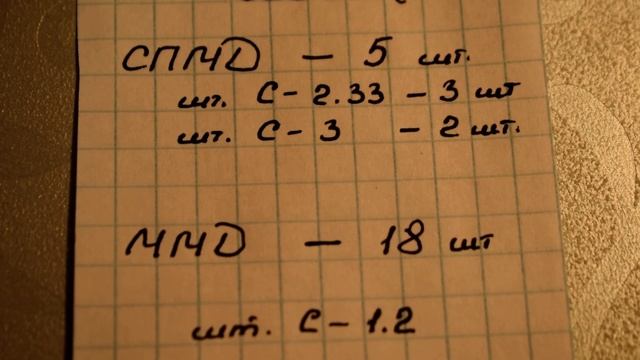 СПМД — 5 шт.
шт. С - 2.33 - 3 шт
шт. С - 3 - 2 шт.
ММД — 18 шт
шт. С - 1.2